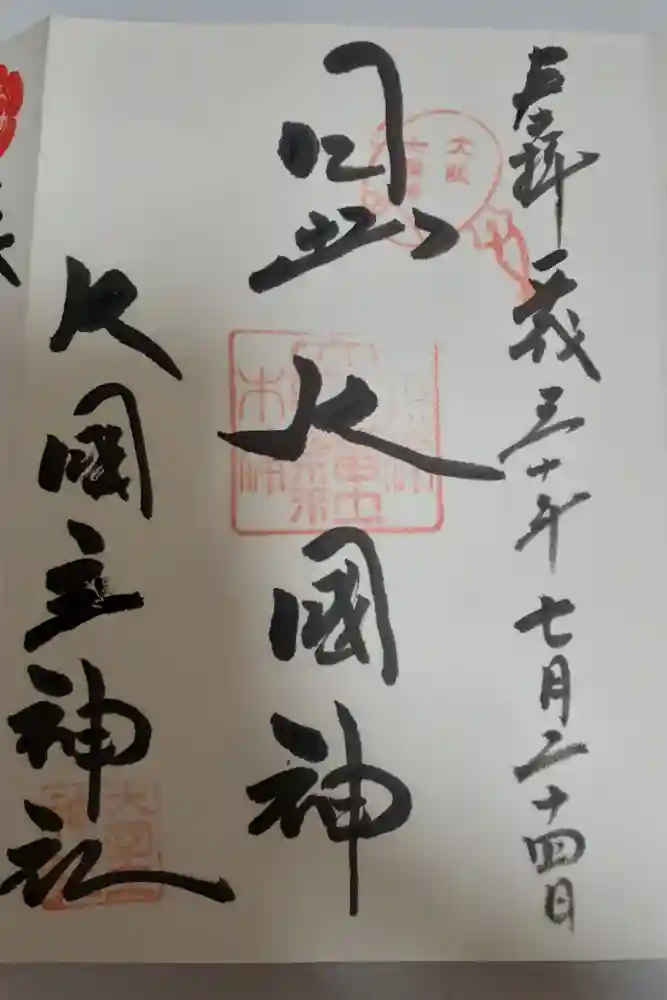 奉拝
平成三十年七月二十四日
大阪
日出大國神
大國主神社